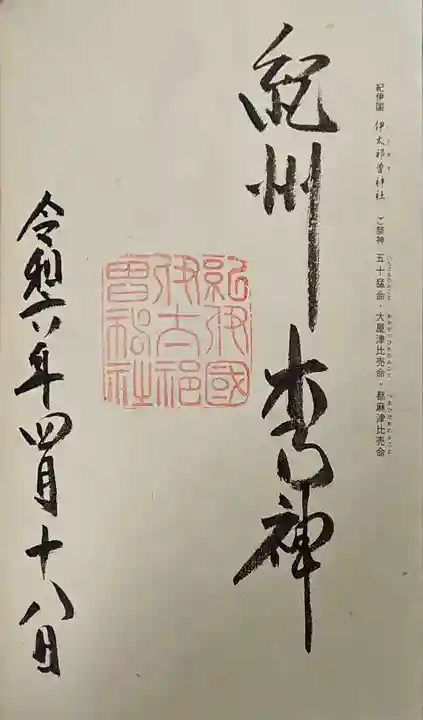 紀伊国 伊太祁曽神社 ご祭神 五十猛命・大屋津比売命・都麻津比売命
紀州 木乃神
紀伊國
伊太祁
曽神社
令和六年四月十八日